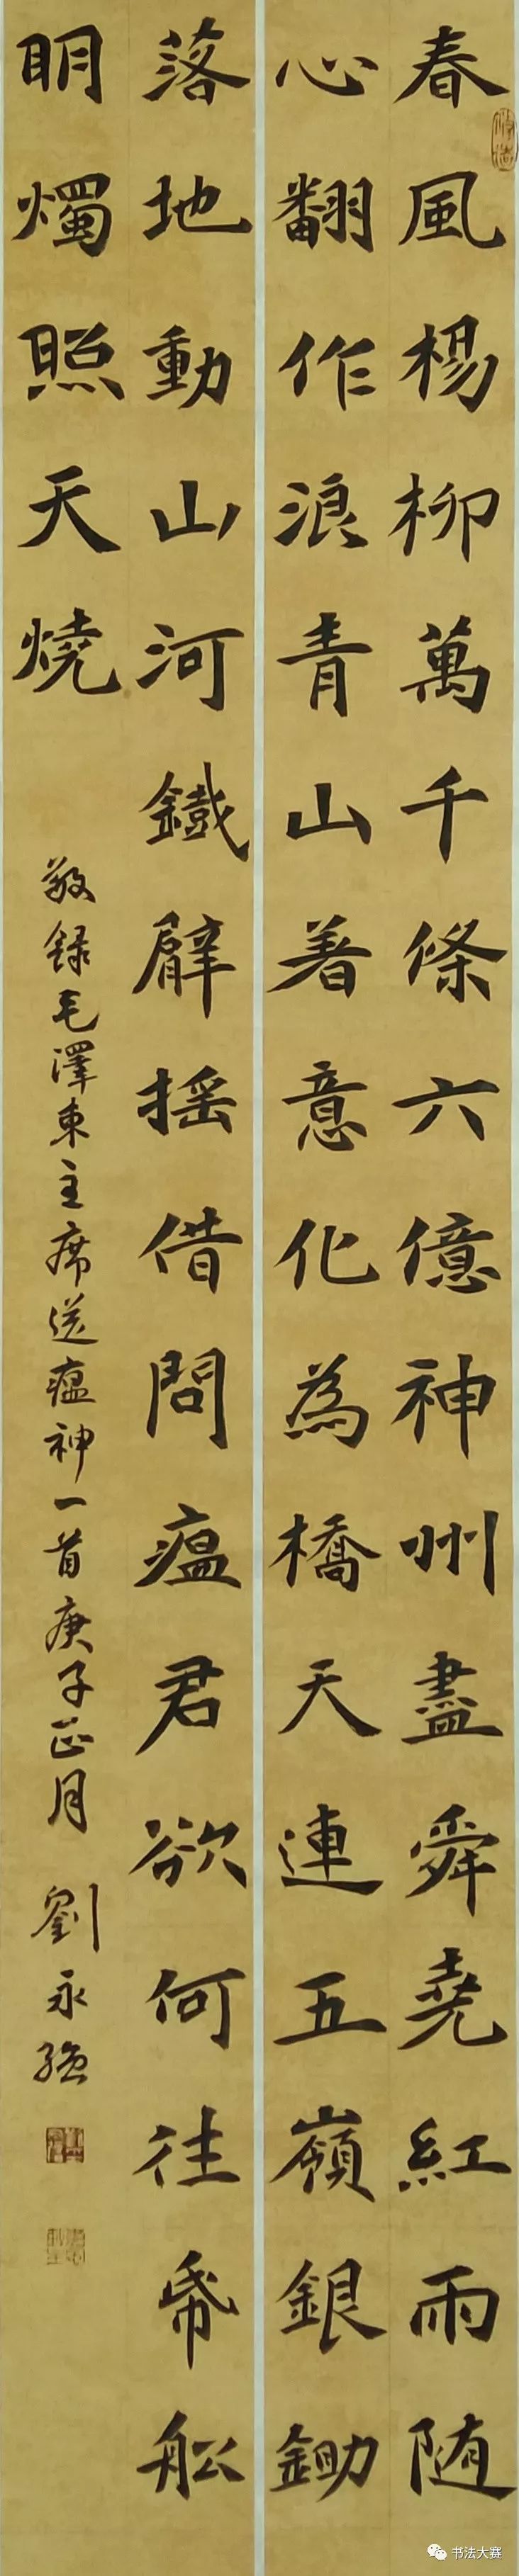 春風楊柳萬千條六億神州盡舜堯紅雨随
心翻作浪青山著意化為橋天連五嶺銀鋤
落地動山河鐵臂摇借問瘟君欲何往帋船
明燭照天燒
敬録毛澤東主席送瘟神一首庚子正月
劉永強
书法大赛